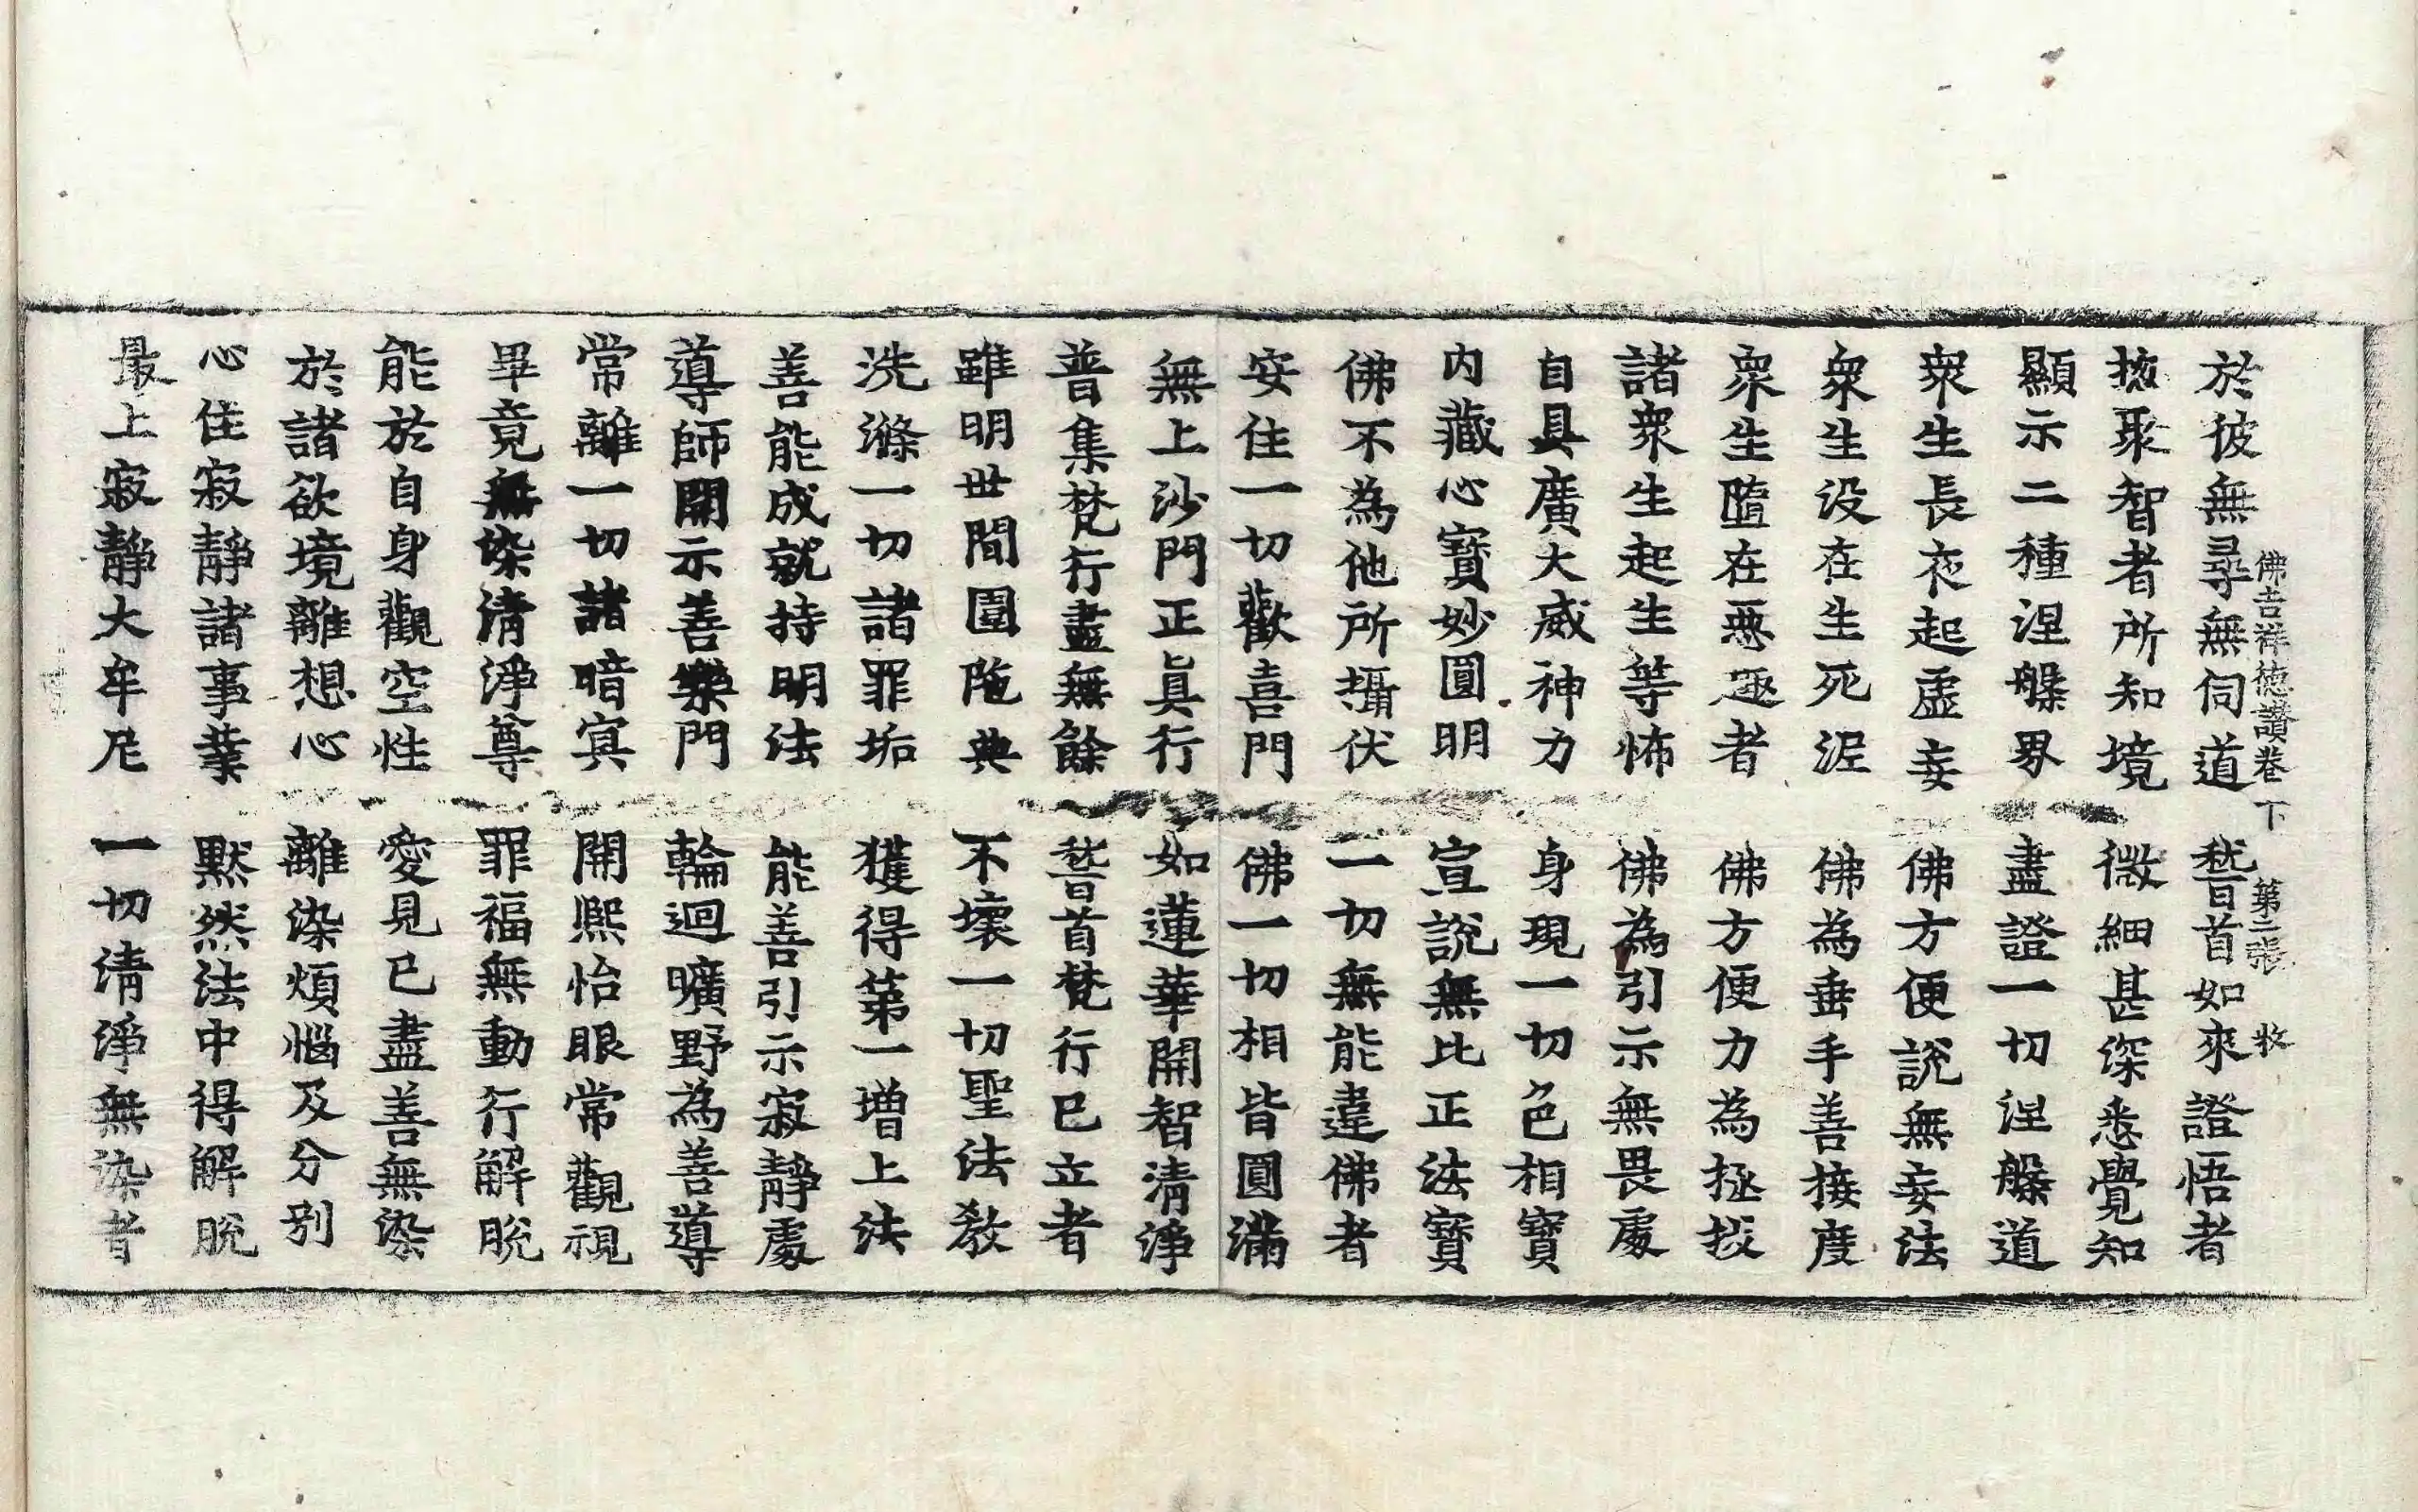 佛吉祥徳讃卷下 第二張 牧
於彼無尋無伺道 嵇首如來證悟者
捴聚智者所知境 微細甚深悉覺知
顯示二種涅槃界 盡證一切涅槃道
衆生長夜起虛妄 佛方便説無妄法
衆生没在生死泥 佛為垂手善接度
衆生墮在惡趣者 佛方便力為拯拔
諸衆生起生等怖 佛為引示無畏處
自具廣大威神力 身現一切色相寶
内藏心寶妙圓明 宣説無比正法寶
佛不為他所攝伏 一切無能違佛者
安住一切歡喜門 佛一切相皆圓滿
無上沙門正眞行 如蓮華開智清淨
普集梵行盡無餘 嵇首梵行已立者
雖明世間圍陁典 不壞一切聖法教
洗滌一切諸罪垢 獲得第一增上法
善能成就持明法 能善引示寂靜處
導師開示善樂門 輪迴曠野為善導
常離一切諸暗冥 開熙怡眼常觀視
畢竟無染清淨尊 罪福無動行解脱
能於自身觀空性 愛見已盡善無染
於諸欲境離想心 離染煩惱及分别
心住寂靜諸事業 默然法中得解脱
最上寂靜大牟尼 一切清淨無染者